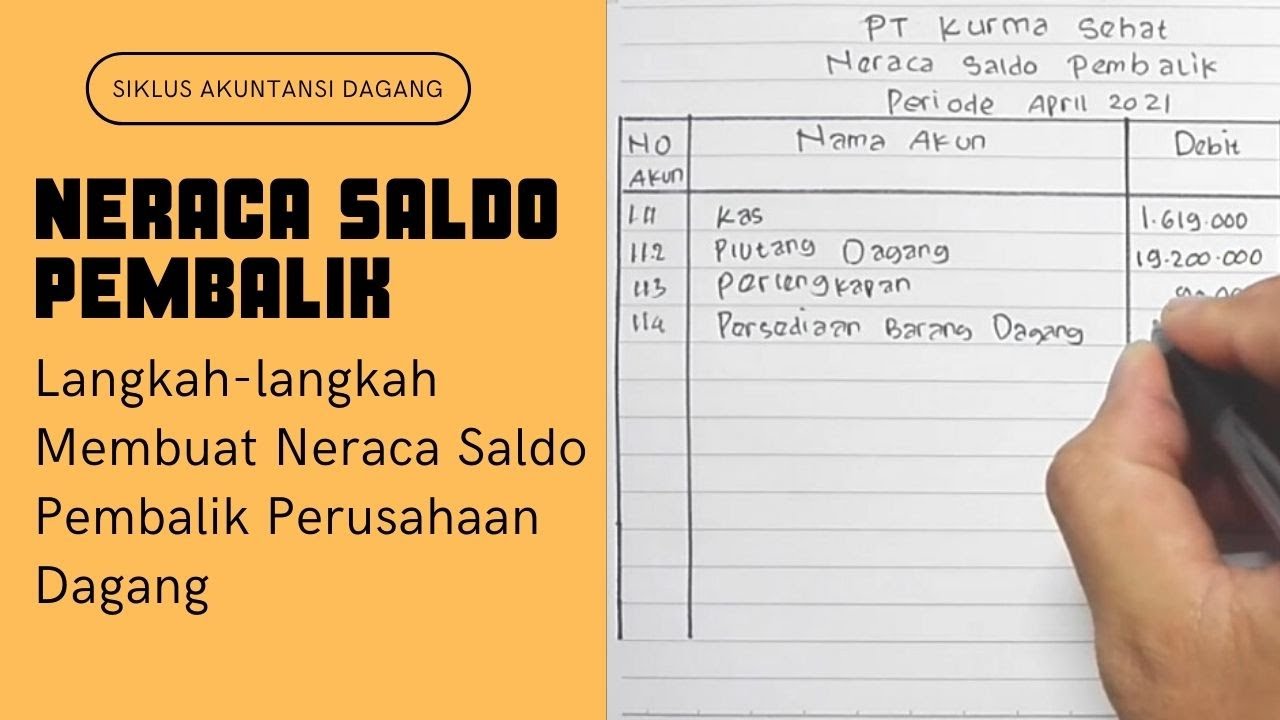 SIKLUS AKUNTANSI DAGANG
NERACA SALDO
PEMBALIK
Langkah-langkah
Membuat Neraca Saldo
Pembalik Perusahaan
Dagang
PT Kurma Sehat
Neraca Saldo Pembalik
Periode April 2021
No Akun Nama Akun Debit
111 Kas 1.619.000
112 Piutang Dagang 19.200.000
113 Perlengkapan
114 Persediaan Barang Dagang